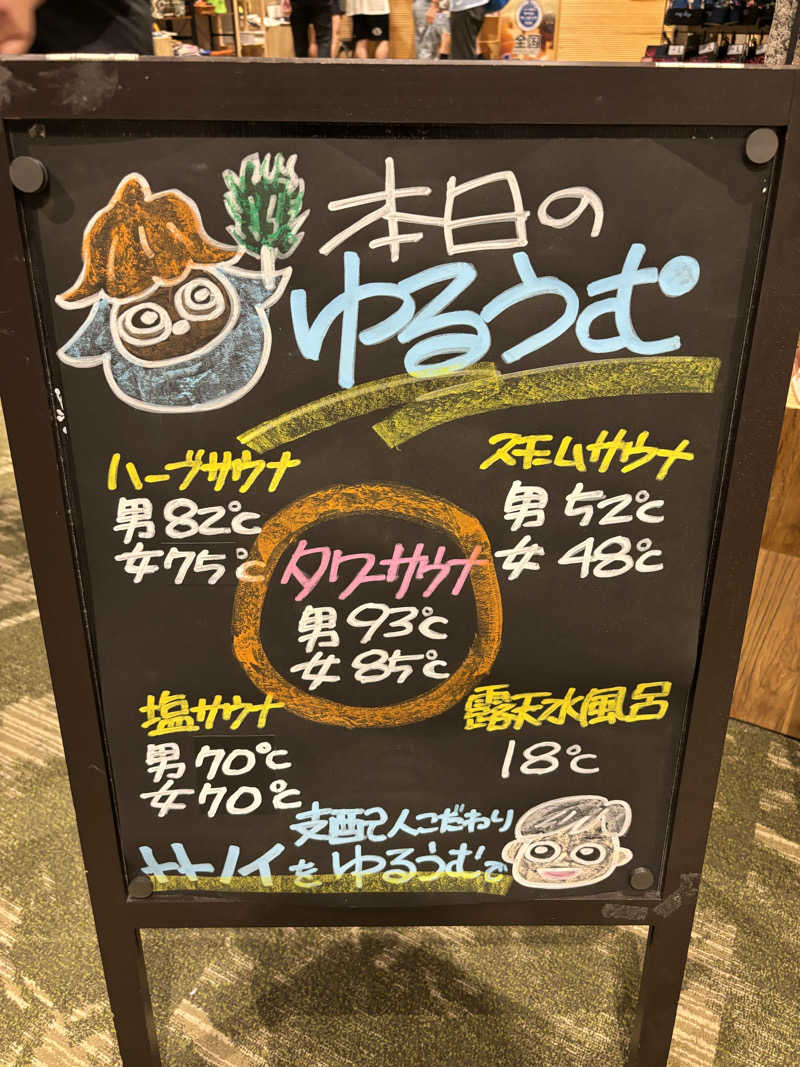 全国
本日の
ゆるうむ
ハーブサウナ
男 82℃
女 75℃
スチームサウナ
男 52℃
女 48℃
タワーサウナ
男 93℃
女 85℃
塩サウナ
男 70℃
女 70℃
露天水風呂
18℃
支配人こだわり
をゆるうむで